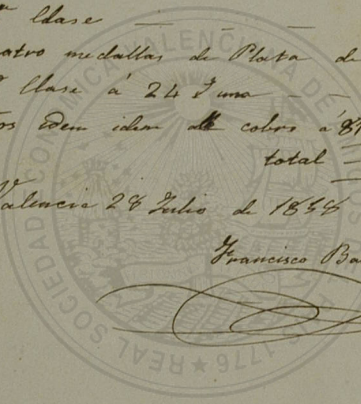 Clase
medallas de Plata de
Clase á 24 una
idem idem de cobre á 8
total
Valencia 28 Julio de 18
Francisco Ba
REAL SOCIEDAD ECONOMICA VALENCIANA DE
1776